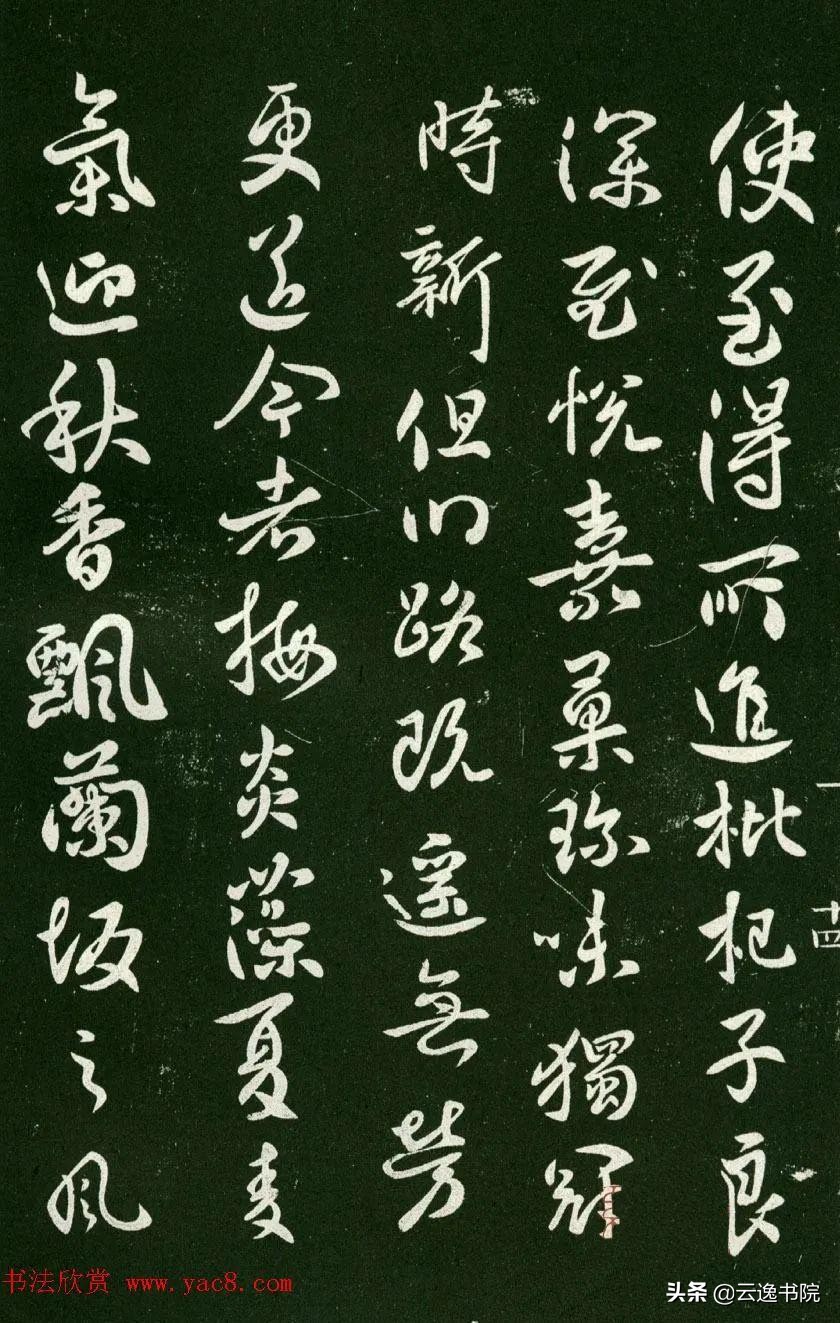 使至得所進枇杷子良
深慰悅嘉菓珍味獨冠
時新但川路既遥無勞
更送今者梅炎藻夏麦
氣迎秋香飄蘭坂之風
一 十四
书法欣赏 www.yac8.com
头条 @云逸书院